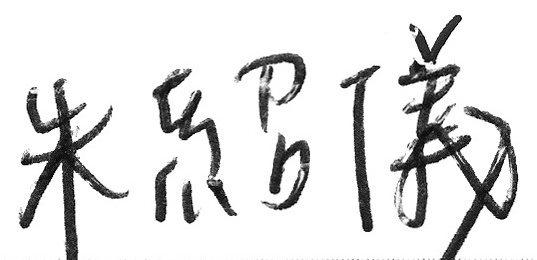 朱紹儀